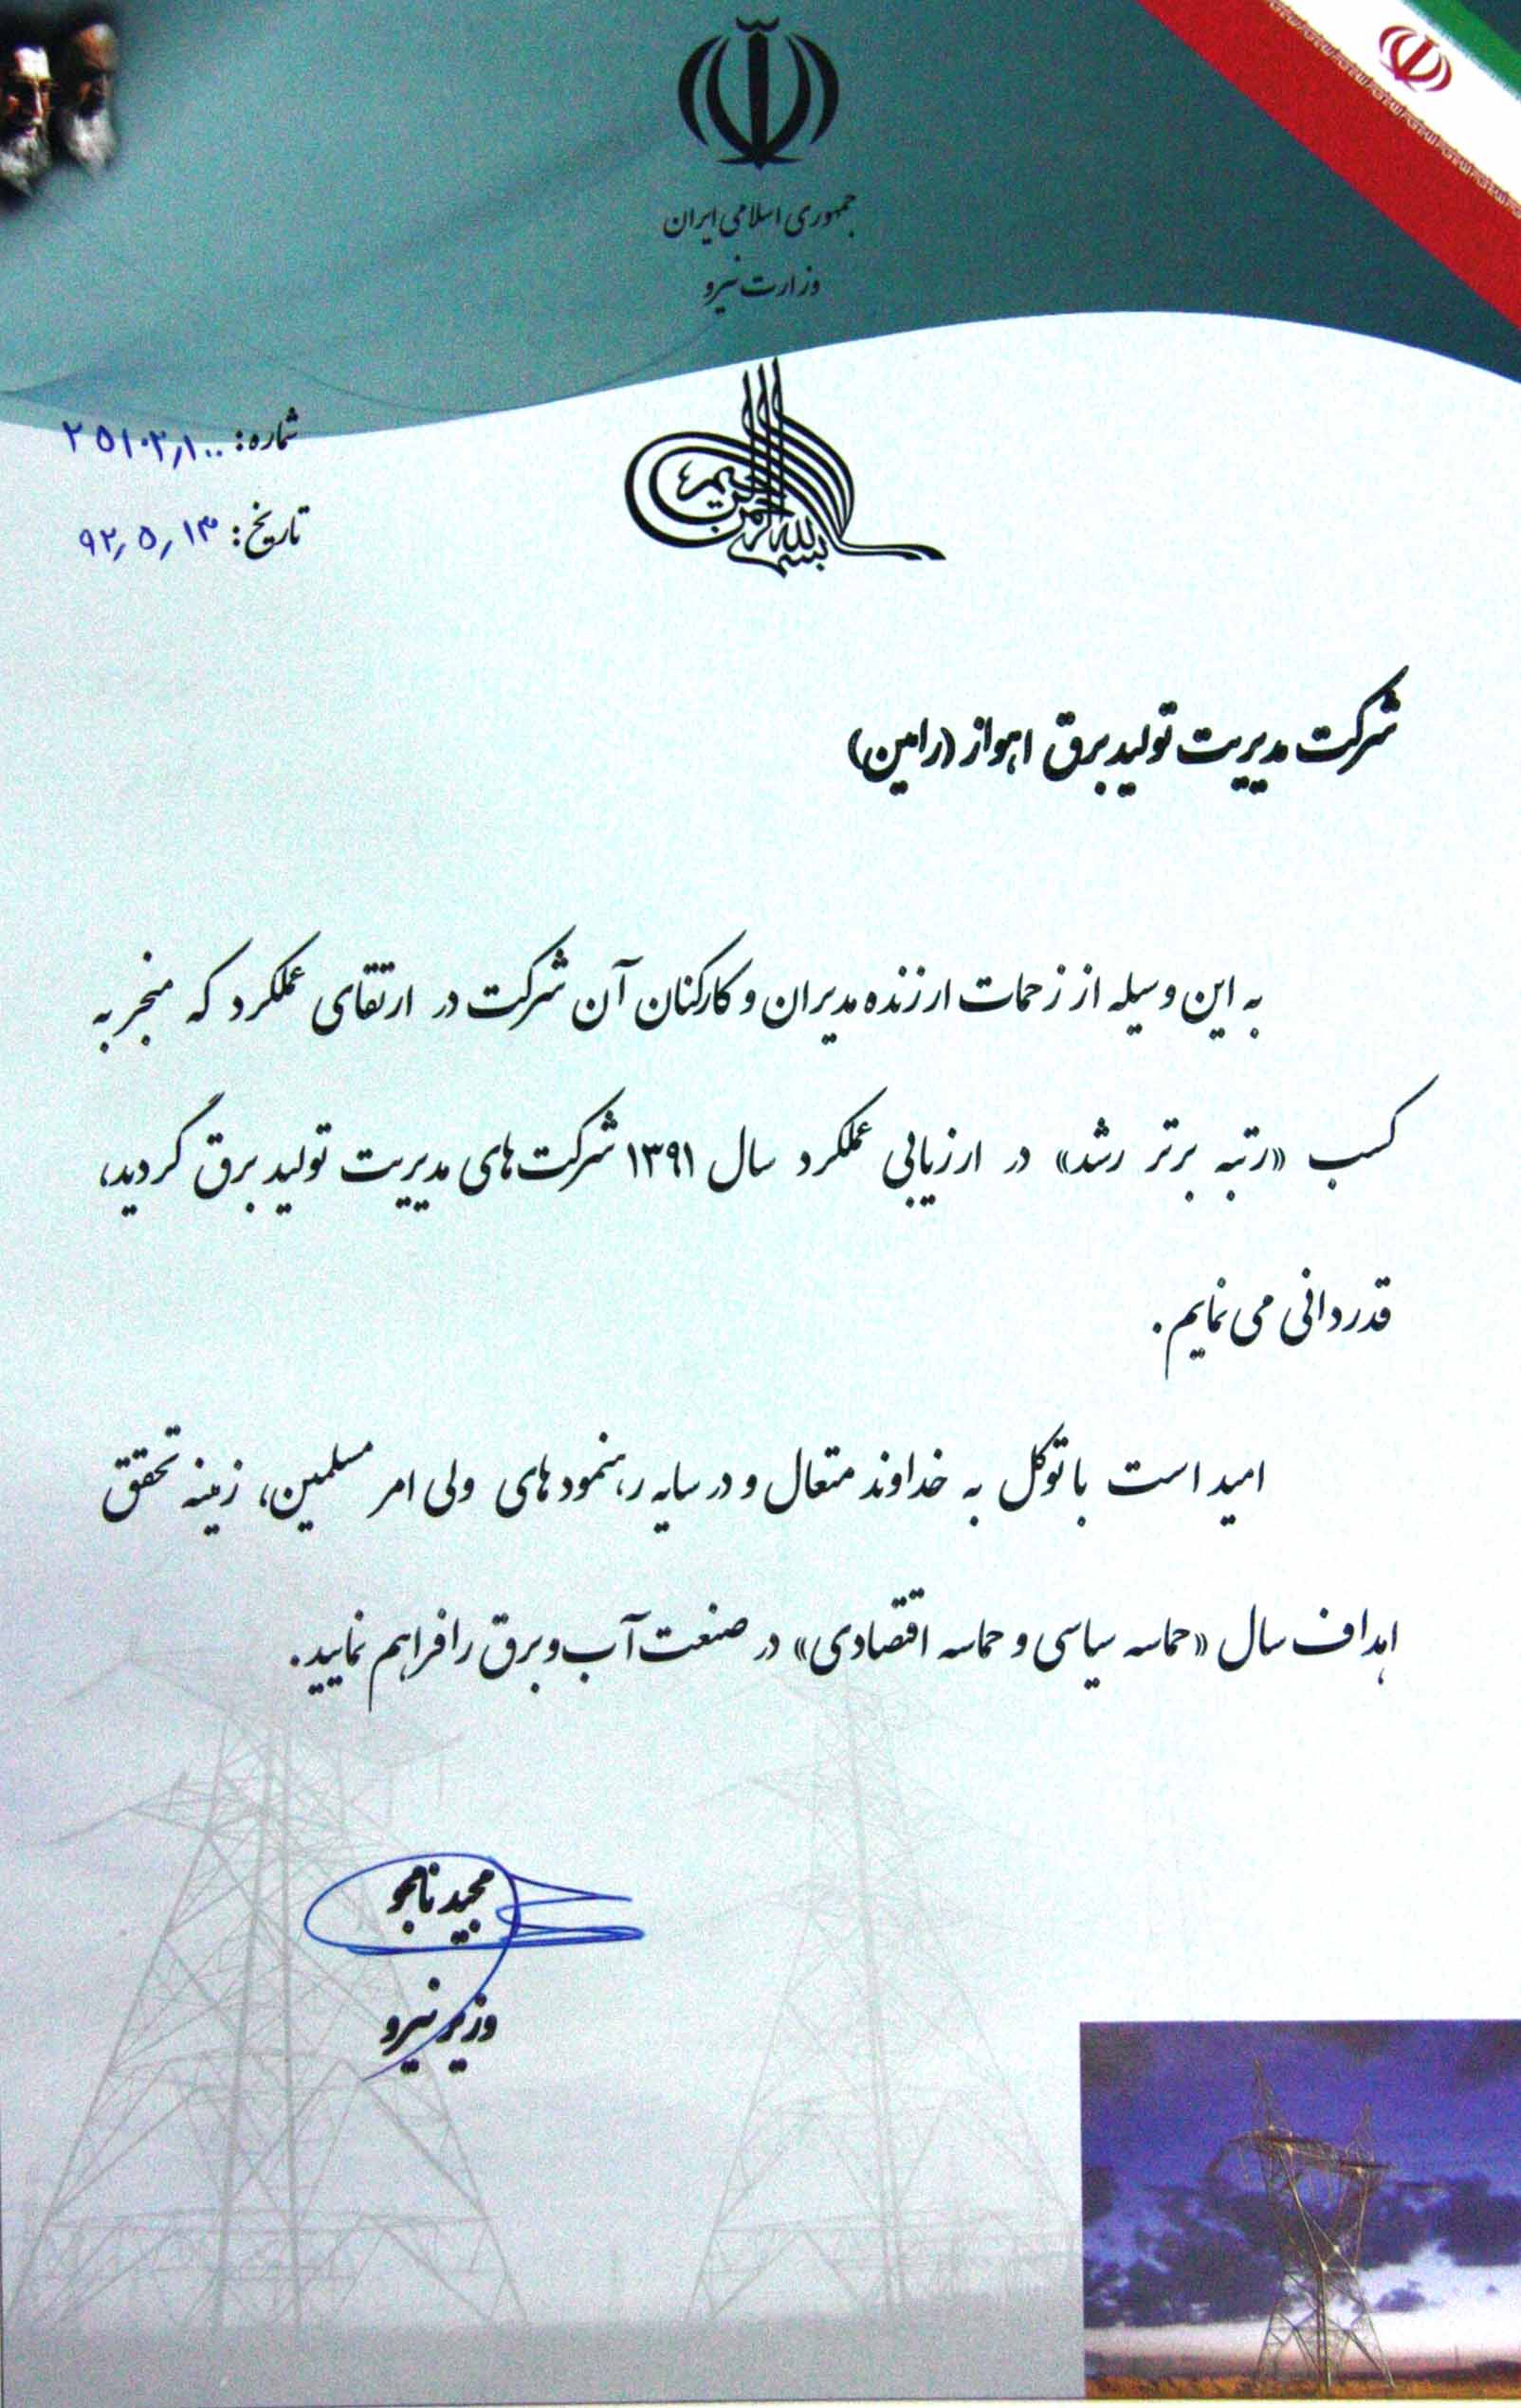 جمهوری اسلامی ایران
وزارت نیرو
بسم الله الرحمن الرحیم
شماره: ۲۵۱۰۲٫۱۰۰
تاریخ: ۹۲٫۵٫۱۳
شرکت مدیریت تولید برق اهواز (رامین)
به این وسیله از زحمات ارزنده مدیران و کارکنان آن شرکت در ارتقای عملکرد که منجر به
کسب «رتبه برتر رشد» در ارزیابی عملکرد سال ۱۳۹۱ شرکت‌های مدیریت تولید برق گردید،
قدردانی می نمایم.
امید است با توکل به خداوند متعال و در سایه رهنمودهای ولی امر مسلمین، زمینه تحقق
اهداف سال «حماسه سیاسی و حماسه اقتصادی» در صنعت آب و برق را فراهم نمایید.
مجید نامجو
وزیر نیرو